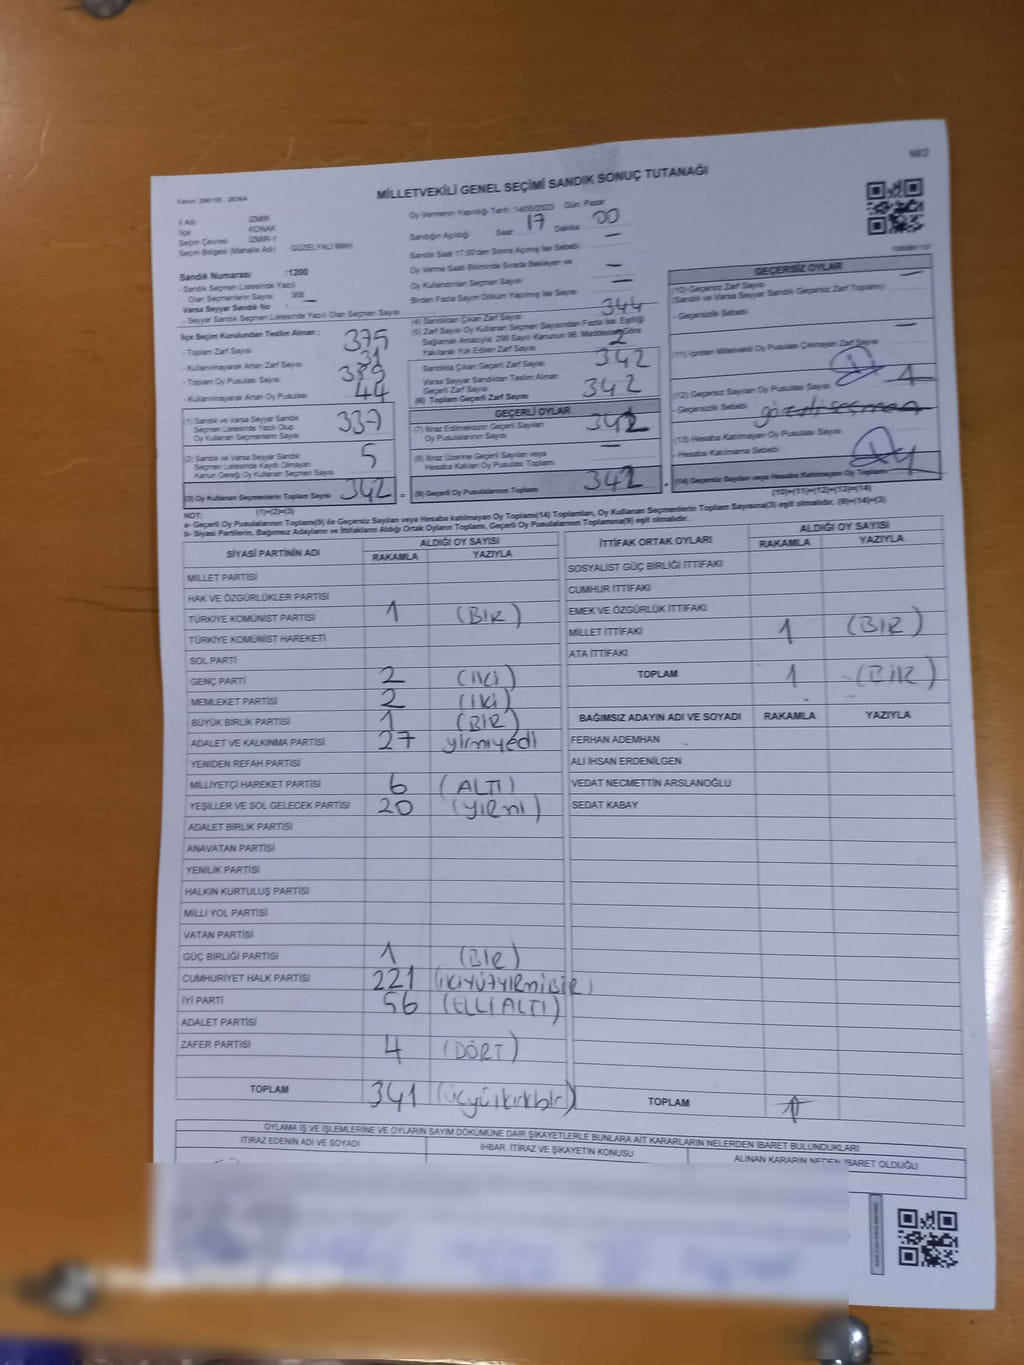 MİLLETVEKİLİ GENEL SEÇİMİ SANDIK SONUÇ TUTANAĞI
İl Adı İZMİR
İlçe KONAK
Seçim Çevresi İZMİR-1
Seçim Bölgesi (Mahalle Adı) GÜZELYALI MAH.
Sandık Numarası :1200
- Sandık Seçmen Listesinde Yazılı
Olan Seçmenlerin Sayısı 368
Varsa Seyyar Sandık No : —
- Seyyar Sandık Seçmen Listesinde Yazılı Olan Seçmen Sayısı
Oy Vermenin Yapıldığı Tarih: 14/05/2023 Gün: Pazar
Sandığın Açıldığı Saat 17 Dakika 00
Sandık Saat 17:00'den Sonra Açılmış İse Sebebi —
Oy Verme Saati Bitiminde Sırada Bekleyen ve
Oy Kullandırılan Seçmen Sayısı —
Birden Fazla Sayım Döküm Yapılmış İse Sayısı —
İlçe Seçim Kurulundan Teslim Alınan :
- Toplam Zarf Sayısı 375
- Kullanılmayarak Artan Zarf Sayısı 31
- Toplam Oy Pusulası Sayısı
- Kullanılmayarak Artan Oy Pusulası 44
(1) Sandık ve Varsa Seyyar Sandık
Seçmen Listesinde Yazılı Olup
Oy Kullanan Seçmenlerin Sayısı 337
(2) Sandık ve Varsa Seyyar Sandık
Seçmen Listesinde Kayıtlı Olmayan
Kanun Gereği Oy Kullanan Seçmen Sayısı 5
(3) Oy Kullanan Seçmenlerin Toplam Sayısı 342 =
(1)+(2)=(3)
(4) Sandıktan Çıkan Zarf Sayısı 344
(5) Zarf Sayısı Oy Kullanan Seçmen Sayısından Fazla İse, Eşitliği
Sağlamak Amacıyla; 298 Sayılı Kanunun 98. Maddesine Göre
Yakılarak Yok Edilen Zarf Sayısı 2
Sandıkta Çıkan Geçerli Zarf Sayısı 342
Varsa Seyyar Sandıktan Teslim Alınan
Geçerli Zarf Sayısı
(6) Toplam Geçerli Zarf Sayısı 342
GEÇERLİ OYLAR
(7) İtiraz Edilmeksizin Geçerli Sayılan
Oy Pusulalarının Sayısı 342
(8) İtiraz Üzerine Geçerli Sayılan veya
Hesaba Katılan Oy Pusulası Toplamı —
(9) Geçerli Oy Pusulalarının Toplamı 342
GEÇERSİZ OYLAR
(10) Geçersiz Zarf Sayısı —
(Sandık ve Varsa Seyyar Sandık Geçersiz Zarf Toplamı)
- Geçersizlik Sebebi
(11) İçinden Milletvekili Oy Pusulası Çıkmayan Zarf Sayısı —
(12) Geçersiz Sayılan Oy Pusulası Sayısı 1
- Geçersizlik Sebebi
(13) Hesaba Katılmayan Oy Pusulası Sayısı
- Hesaba Katılmama Sebebi
(14) Geçersiz Sayılan veya Hesaba Katılmayan Oy Toplamı
(10)+(11)+(12)+(13)=(14)
NOT:
a- Geçerli Oy Pusulalarının Toplamı(9) ile Geçersiz Sayılan veya Hesaba katılmayan Oy Toplamı(14) Toplamları, Oy Kullanan Seçmenlerin Toplam Sayısına(3) eşit olmalıdır. (9)+(14)=(3)
b- Siyasi Partilerin, Bağımsız Adayların ve İttifakların Aldığı Ortak Oyların Toplamı, Geçerli Oy Pusulalarının Toplamına(9) eşit olmalıdır.
SİYASİ PARTİNİN ADI ALDIĞI OY SAYISI
RAKAMLA YAZIYLA
MİLLET PARTİSİ
HAK VE ÖZGÜRLÜKLER PARTİSİ
TÜRKİYE KOMÜNİST PARTİSİ 1 (BİR)
TÜRKİYE KOMÜNİST HAREKETİ
SOL PARTİ
GENÇ PARTİ 2 (İKİ)
MEMLEKET PARTİSİ 2 (İKİ)
BÜYÜK BİRLİK PARTİSİ 1 (BİR)
ADALET VE KALKINMA PARTİSİ 27 yirmiyedi
YENİDEN REFAH PARTİSİ
MİLLİYETÇİ HAREKET PARTİSİ 6 (ALTI)
YEŞİLLER VE SOL GELECEK PARTİSİ 20 (YİRMİ)
ADALET BİRLİK PARTİSİ
ANAVATAN PARTİSİ
YENİLİK PARTİSİ
HALKIN KURTULUŞ PARTİSİ
MİLLİ YOL PARTİSİ
VATAN PARTİSİ
GÜÇ BİRLİĞİ PARTİSİ 1 (BİR)
CUMHURİYET HALK PARTİSİ 221 (İKİYÜZYİRMİBİR)
İYİ PARTİ 56 (ELLİALTI)
ADALET PARTİSİ
ZAFER PARTİSİ 4 (DÖRT)
TOPLAM 341 (üçyüzkırkbir)
İTTİFAK ORTAK OYLARI ALDIĞI OY SAYISI
RAKAMLA YAZIYLA
SOSYALİST GÜÇ BİRLİĞİ İTTİFAKI
CUMHUR İTTİFAKI
EMEK VE ÖZGÜRLÜK İTTİFAKI
MİLLET İTTİFAKI 1 (BİR)
ATA İTTİFAKI
TOPLAM 1 (BİR)
BAĞIMSIZ ADAYIN ADI VE SOYADI RAKAMLA YAZIYLA
FERHAN ADEMHAN
ALİ İHSAN ERDENİLGEN
VEDAT NECMETTİN ARSLANOĞLU
SEDAT KABAY
TOPLAM
OYLAMA İŞ VE İŞLEMLERİNE VE OYLARIN SAYIM DÖKÜMÜNE DAİR ŞİKAYETLERLE BUNLARA AİT KARARLARIN NELERDEN İBARET BULUNDUKLARI
İTİRAZ EDENİN ADI VE SOYADI İHBAR, İTİRAZ VE ŞİKAYETİN KONUSU ALINAN KARARIN NEDEN İBARET OLDUĞU